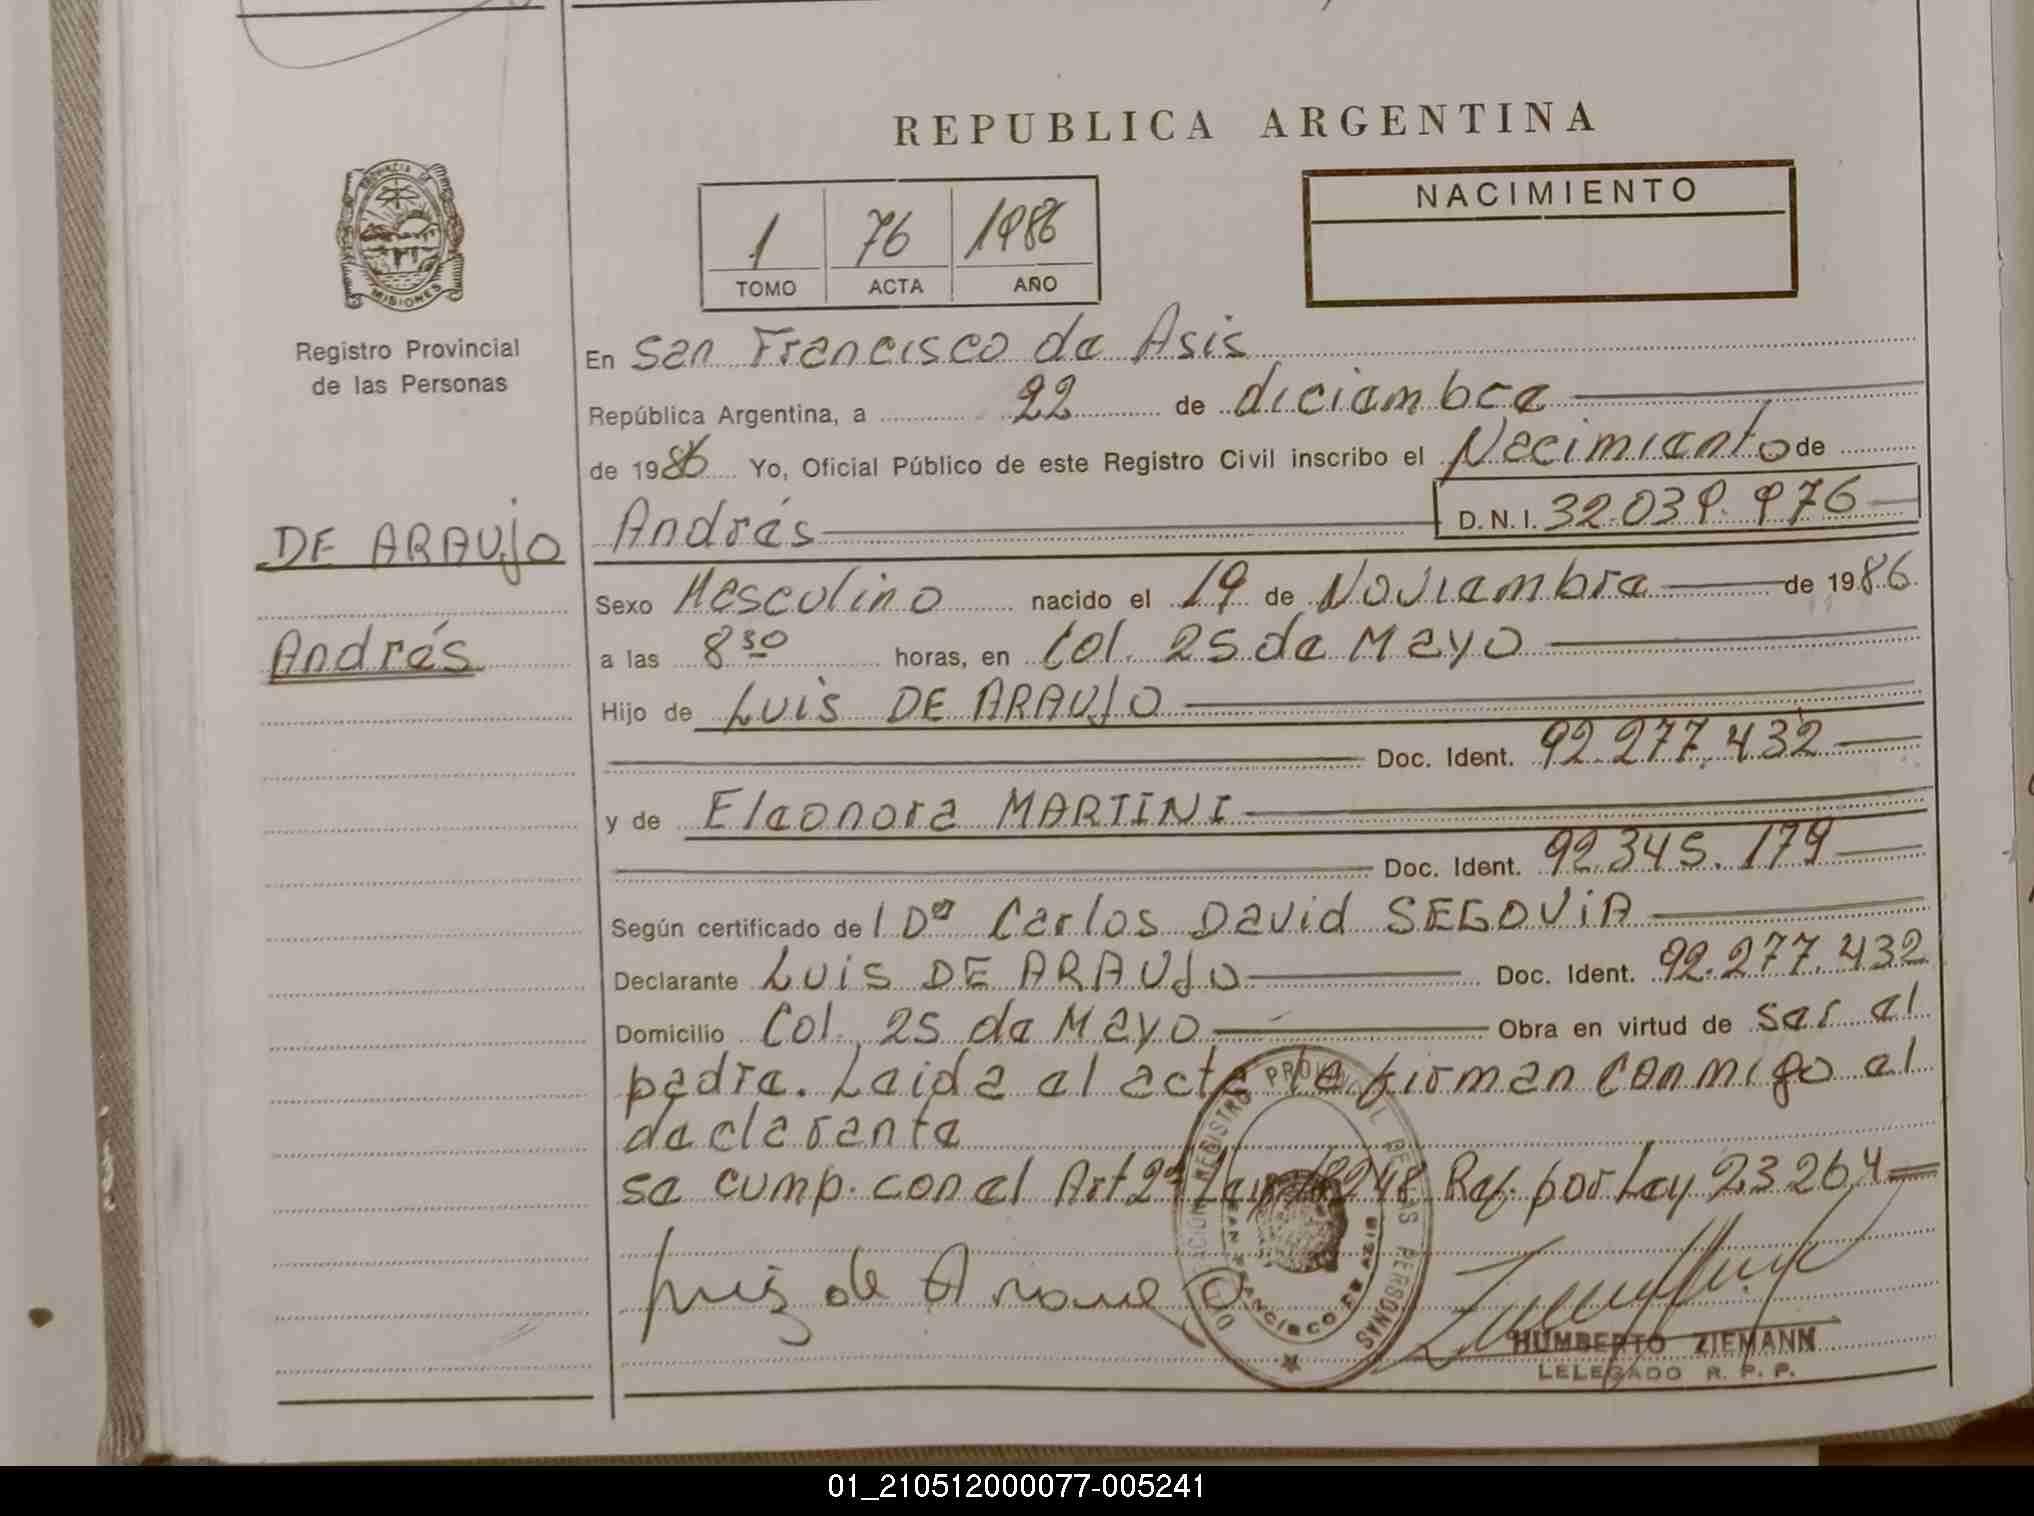 REPUBLICA ARGENTINA
PROVINCIA DE
MISIONES
Registro Provincial
de las Personas
1 76 1986
TOMO ACTA AÑO
NACIMIENTO
En San Francisco de Asis
República Argentina, a 22 de diciembre
de 1986 Yo, Oficial Público de este Registro Civil inscribo el Nacimiento de
DE ARAUJO
Andrés D.N.I. 32.039.976
Sexo Masculino nacido el 19 de Noviembre de 1986
Andrés
a las 8 30 horas, en Col. 25 de Mayo
Hijo de Luis DE ARAUJO
Doc. Ident. 92.277.432
y de Eleonora MARTINI
Doc. Ident. 92.345.179
Según certificado del Dº Carlos David SEGOVIA
Declarante Luis DE ARAUJO Doc. Ident. 92.277.432
Domicilio Col. 25 de Mayo Obra en virtud de ser el
padre. Leida el acta la firman conmigo el
declarante
se cump. con el Art 2º Ley 18248 Ref. por Ley 23264
Luis de Araujo
REGISTRO PROVINCIAL DE LAS PERSONAS
SAN FRANCISCO DE ASIS
HUMBERTO ZIEMANN
LELEGADO R. P. P.
01_210512000077-005241